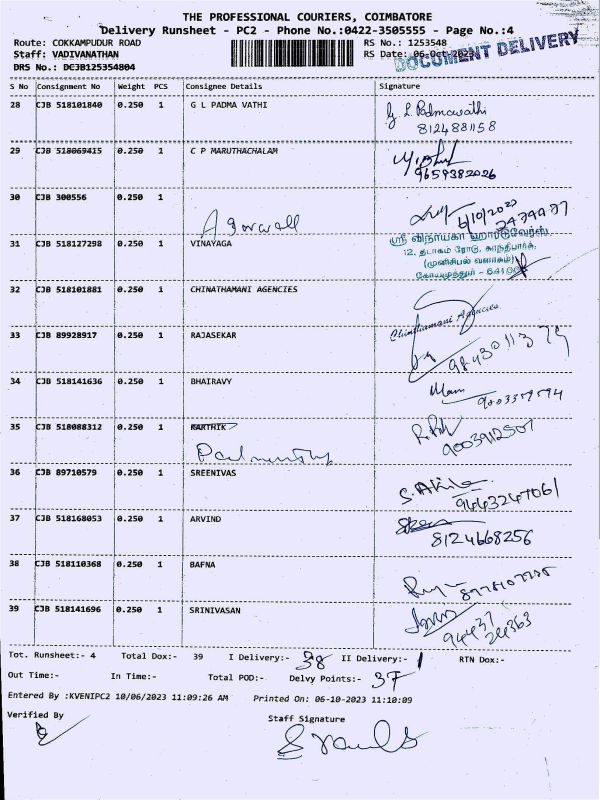 THE PROFESSIONAL COURIERS, COIMBATORE
Delivery Runsheet - PC2 - Phone No.:0422-3505555 - Page No.:4
Route: COKKAMPUDUR ROAD RS No.: 1253548
Staff: VADIVANATHAN RS Date: 06-Oct-2023
DOCUMENT DELIVERY
DRS No.: DCJB125354804
S No Consignment No Weight PCS Consignee Details Signature
28 CJB 518101840 0.250 1 G L PADMA VATHI G. L. Padmavathi
8124881158
29 CJB 518069415 0.250 1 C P MARUTHACHALAM
9659382026
30 CJB 300556 0.250 1
Agarwall 6/10/2023
31 CJB 518127298 0.250 1 VINAYAGA
ஸ்ரீ விநாயகா ஹார்டுவேர்ஸ்
12, தடாகம் ரோடு, காந்திபார்க்,
(முனிசிபல் வளாகம்)
கோயமுத்தூர் -
32 CJB 518101881 0.250 1 CHINATHAMANI AGENCIES
Chinthamani Agencies
33 CJB 89928917 0.250 1 RAJASEKAR
34 CJB 518141636 0.250 1 BHAIRAVY
35 CJB 518088312 0.250 1 KARTHIK
9003912507
36 CJB 89710579 0.250 1 SREENIVAS S. Akila
9443247061
37 CJB 518168053 0.250 1 ARVIND
8124668256
38 CJB 518110368 0.250 1 BAFNA
39 CJB 518141696 0.250 1 SRINIVASAN
94437
24363
Tot. Runsheet:- 4 Total Dox:- 39 I Delivery:- 38 II Delivery:- 1 RTN Dox:-
Out Time:- In Time:- Total POD:- Delvy Points:- 37
Entered By :KVENIPC2 10/06/2023 11:09:26 AM Printed On: 06-10-2023 11:10:09
Verified By Staff Signature